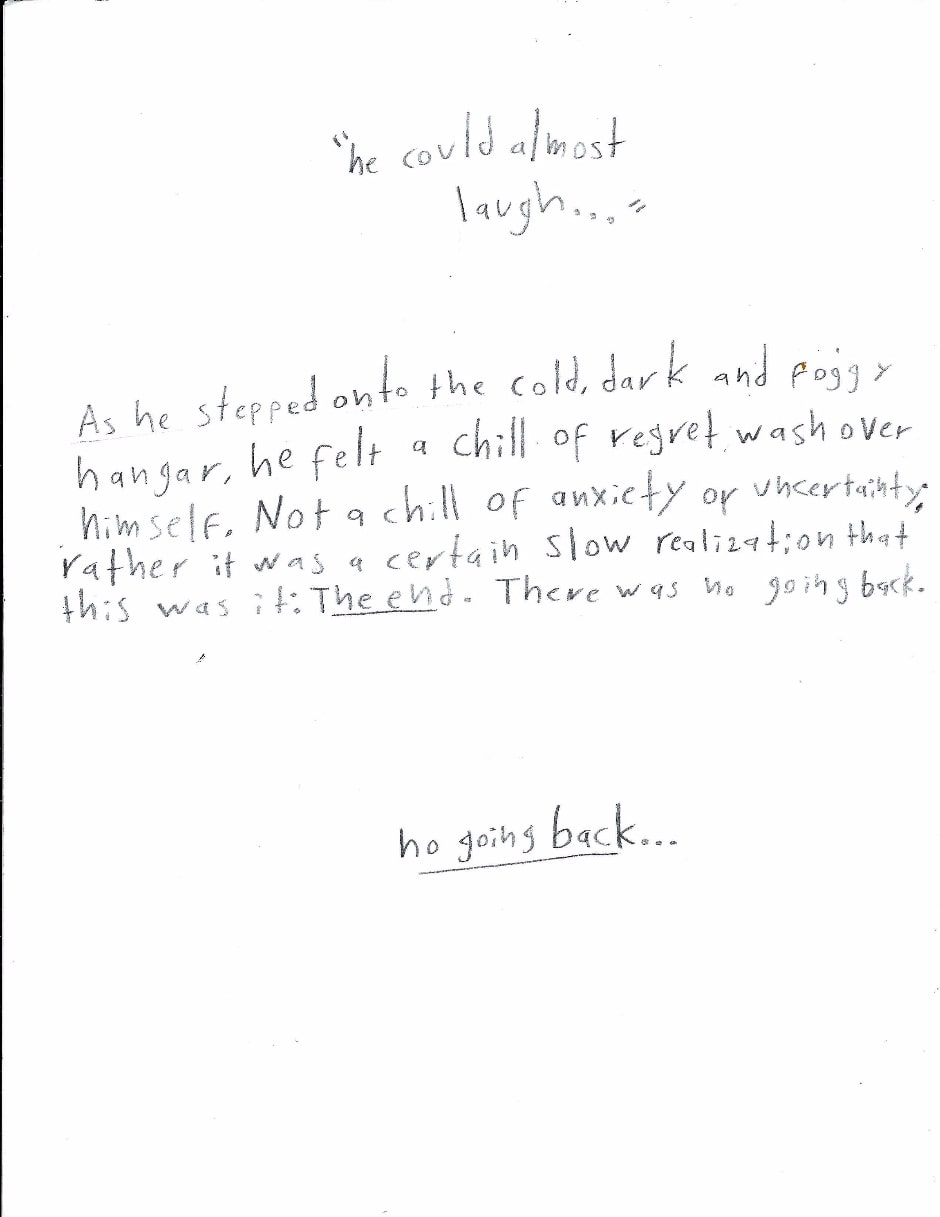 "he could almost
laugh..."
As he stepped onto the cold, dark and foggy
hangar, he felt a chill of regret wash over
himself. Not a chill of anxiety or uncertainty;
rather it was a certain slow realization that
this was it: The end. There was no going back.
no going back...